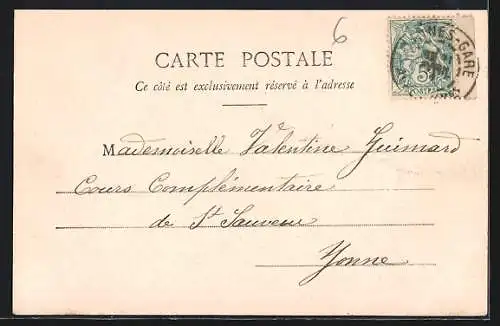 6
CARTE POSTALE
Ce côté est exclusivement réservé à l'adresse
NNES-GARE
5
POSTES
Mademoiselle Valentine Guimard
Cours Complémentaire
de St Sauveur
Yonne